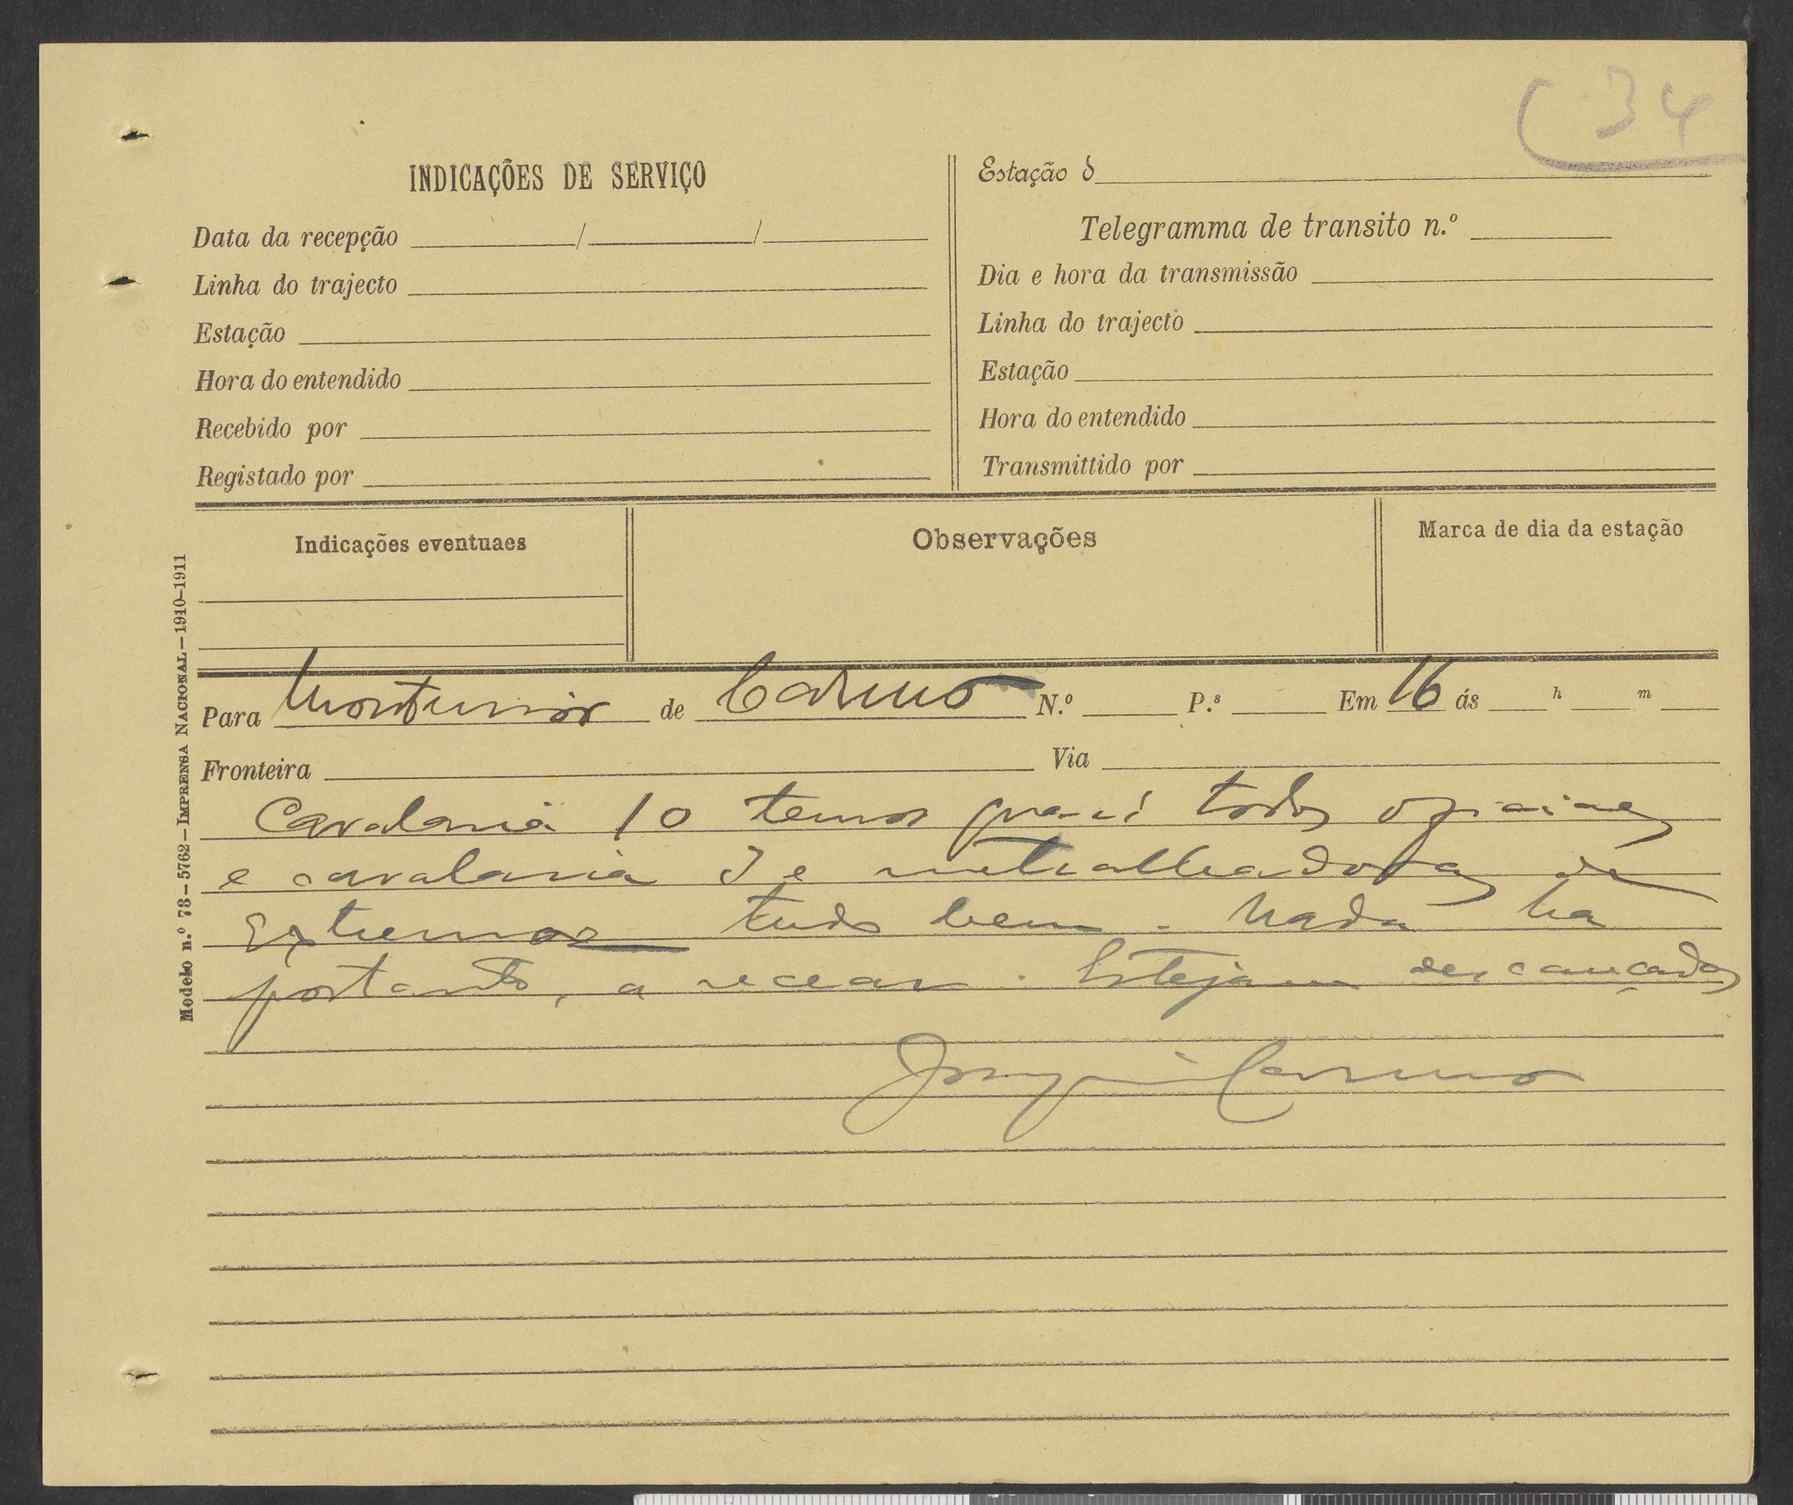 34
INDICAÇÕES DE SERVIÇO
Data da recepção / /
Linha do trajecto
Estação
Hora do entendido
Recebido por
Registado por
Estação d
Telegramma de transito n.º
Dia e hora da transmissão
Linha do trajecto
Estação
Hora do entendido
Transmittido por
Indicações eventuaes
Observações
Marca de dia da estação
Modelo n.º 73—5762—IMPRENSA NACIONAL—1910-1911
Para Montemór de Carmo N.º P.s Em 16 ás h m
Fronteira Via
Cavalaria 10 temos quasi todos oficiaes
e cavalaria 3 e metralhadoras de
Extremoz tudo bem. Nada ha
portanto, a recear. Estejam descançados
Carmo